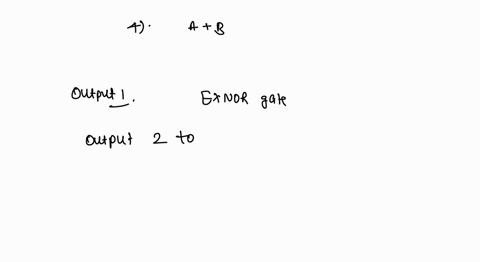 4). A+B
Output 1. EXNOR gate
Output 2 to